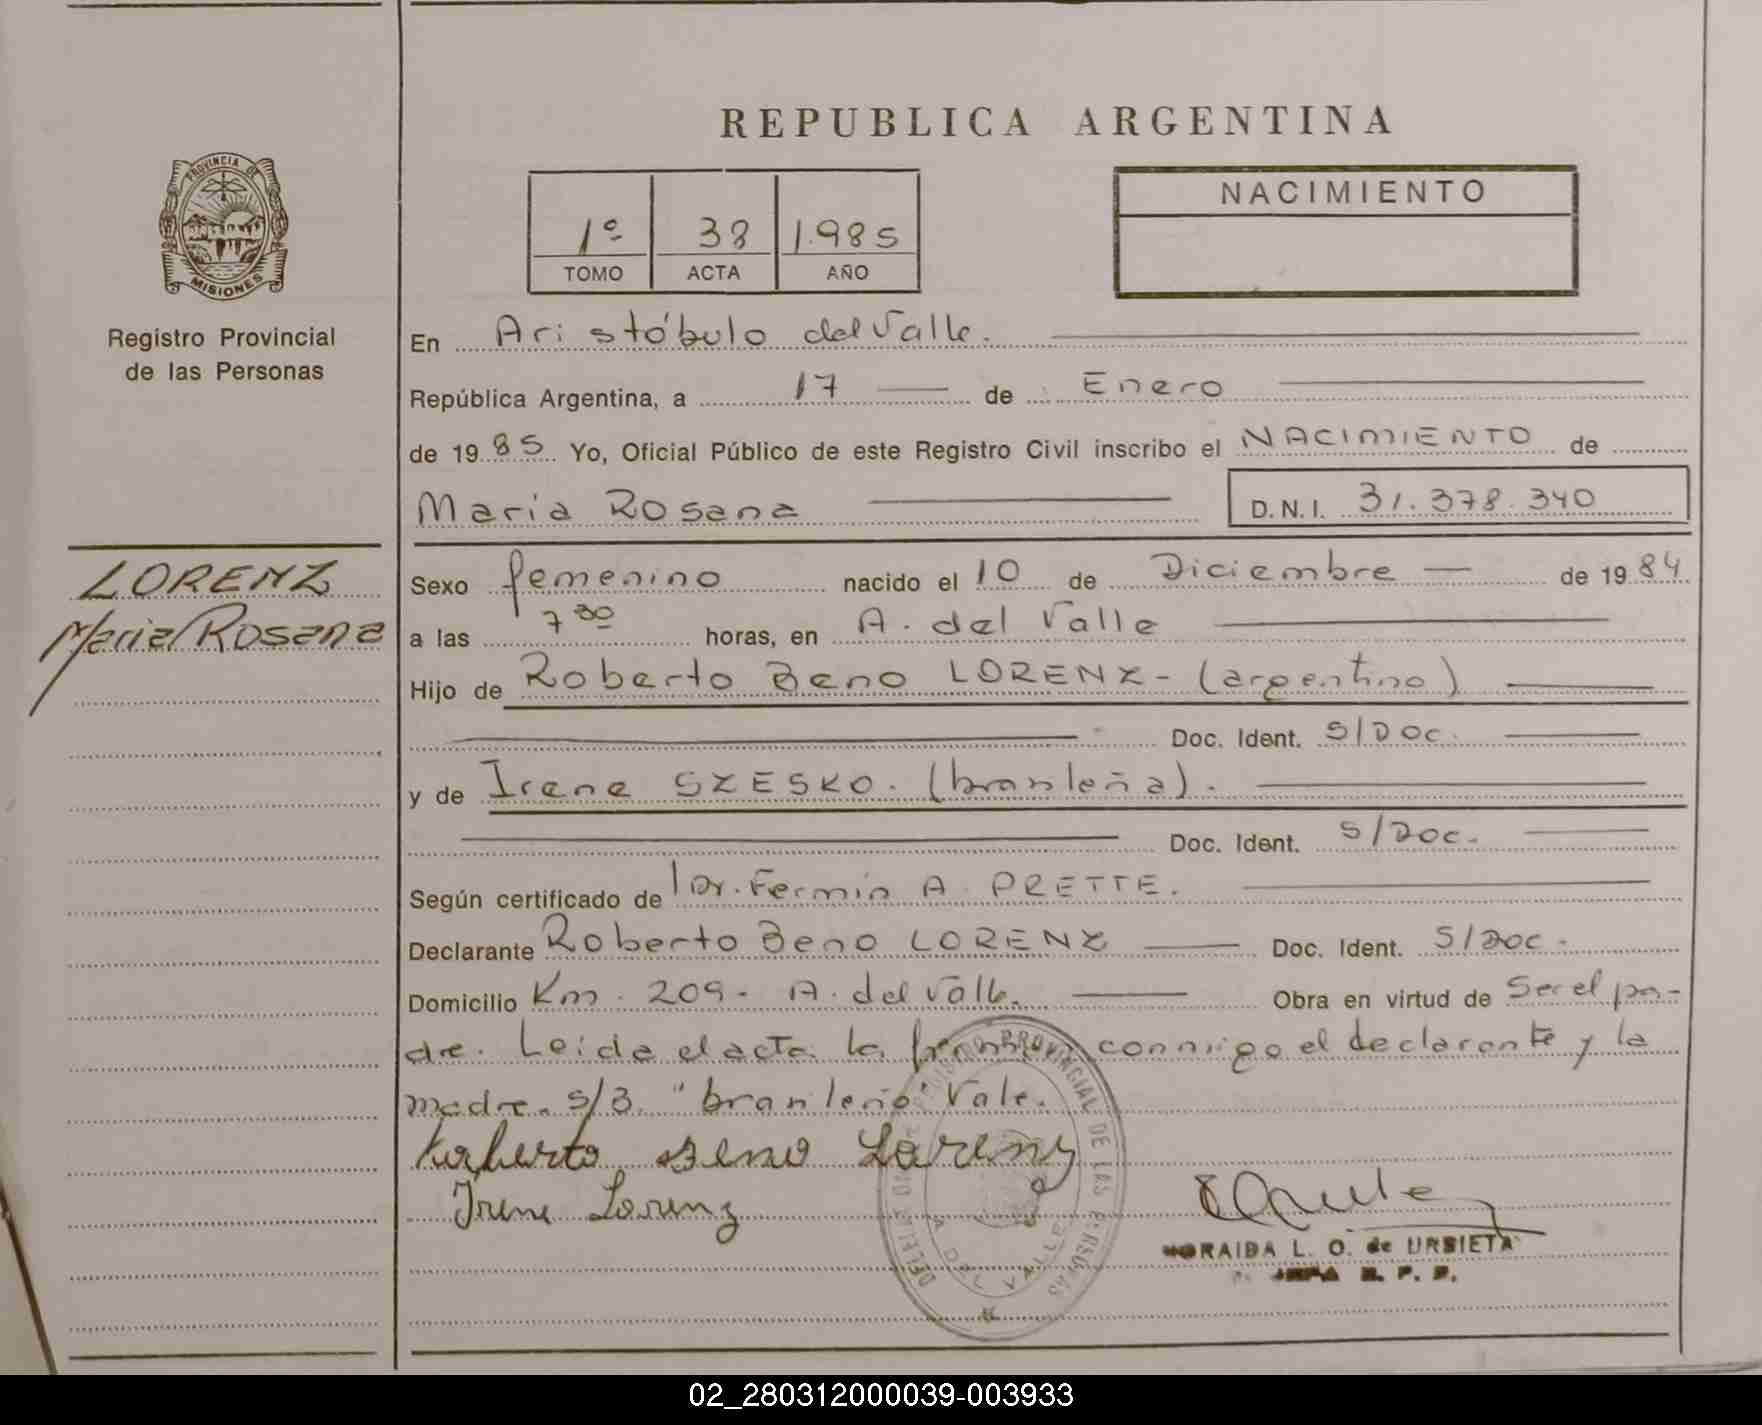 REPUBLICA ARGENTINA
PROVINCIA DE
MISIONES
Registro Provincial
de las Personas
1º 38 1.985
TOMO ACTA AÑO
NACIMIENTO
En Aristóbulo del Valle.
República Argentina, a 17 de Enero
de 19 85 Yo, Oficial Público de este Registro Civil inscribo el NACIMIENTO de
Maria Rosana D.N.I. 31.378.340
LORENZ
Maria Rosana
Sexo femenino nacido el 10 de Diciembre de 19 84
a las 7 30 horas, en A. del Valle
Hijo de Roberto Beno LORENZ - (argentino)
Doc. Ident. S/Doc.
y de Irene SZESKO. (brasileña).
Doc. Ident. S/Doc.
Según certificado de Dr. Fermin A. PRETTE.
Declarante Roberto Beno LORENZ Doc. Ident. S/Doc.
Domicilio Km. 209- A. del Valle. Obra en virtud de Ser el pa-
dre. Leida el acta la firman conmigo el declarante y la
madre. S/B. "brasileño" Vale.
Roberto Beno Lorenz
Irene Lorenz
PROVINCIAL DE LAS PERSONAS
A. DEL VALLE
L. O. de URBIETA
R. P. P.
02_280312000039-003933